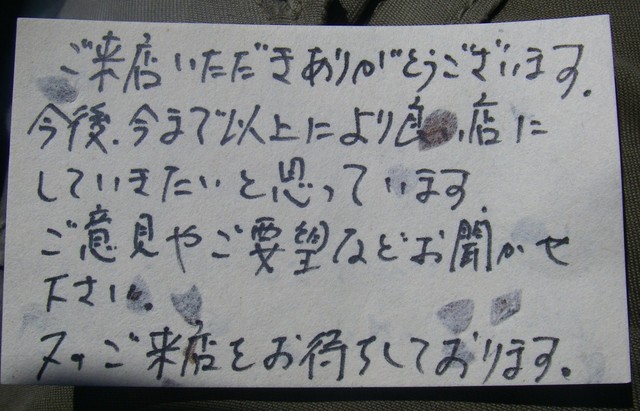 ご来店いただきありがとうございます。
今後、今まで以上により良い店に
していきたいと思っています。
ご意見やご要望などお聞かせ
下さい。
又のご来店をお待ちしております。